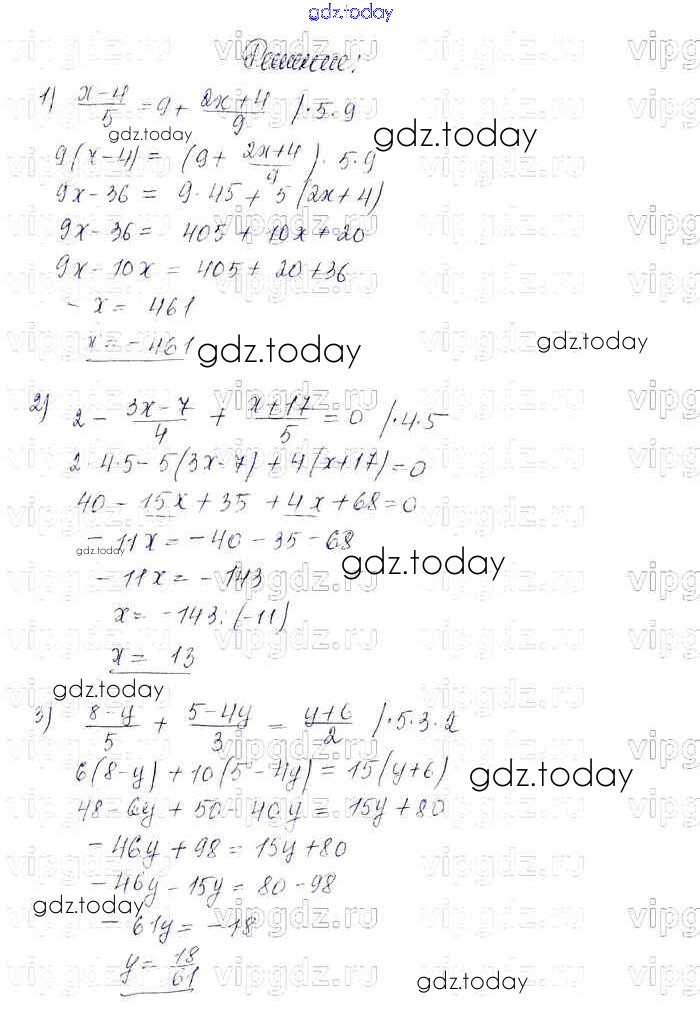 gdz.today
Решение:
1) (x-4)/5 = 9 + (2x+4)/9 /·5·9
gdz.today
gdz.today
9(x-4) = (9 + (2x+4)/9)·5·9
9x-36 = 9·45 + 5(2x+4)
9x-36 = 405 + 10x + 20
9x-10x = 405 + 20 + 36
-x = 461
x = -461
gdz.today
gdz.today
2) 2 - (3x-7)/4 + (x+17)/5 = 0 /·4·5
2·4·5 - 5(3x-7) + 4(x+17) = 0
40 - 15x + 35 + 4x + 68 = 0
-11x = -40 - 35 - 68
gdz.today
gdz.today
-11x = -143
x = -143:(-11)
x = 13
gdz.today
3) (8-y)/5 + (5-4y)/3 = (y+6)/2 /·5·3·2
6(8-y) + 10(5-4y) = 15(y+6)
gdz.today
48-6y + 50 - 40y = 15y + 80
-46y + 98 = 15y + 80
-46y - 15y = 80 - 98
gdz.today
-61y = -18
y = 18/61
gdz.today
vipgdz.ru